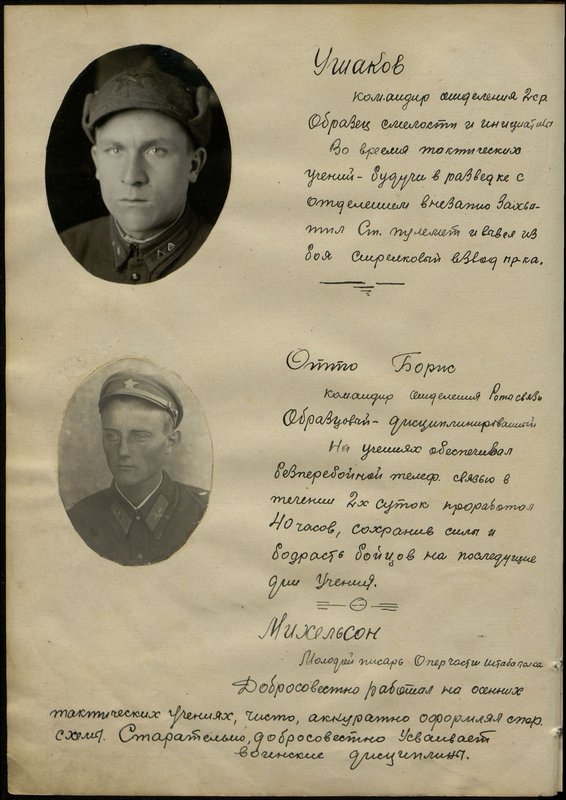 Ушаков
Командир отделения 2 ср.
Образец смелости и инициативы
Во время тактических
учений - будучи в разведке с
отделением внезапно захва-
тил Ст. пулемет и вывел из
боя стрелковый взвод пр-ка.
Отто Борис
Командир отделения Роты связи
Образцовый - дисциплинированный
На учениях обеспечивал
бесперебойной телеф. связью в
течении 2х суток проработал
40 часов, сохранив силы и
бодрасть бойцов на последующие
дни Учения.
Михельсон
Молодой писарь Оперчасти штаба полка
Добросовестно работал на осенних
тактических учениях, чисто, аккуратно оформлял опер.
схемы. Старательно, добросовестно Усваивает
воинские дисциплины.